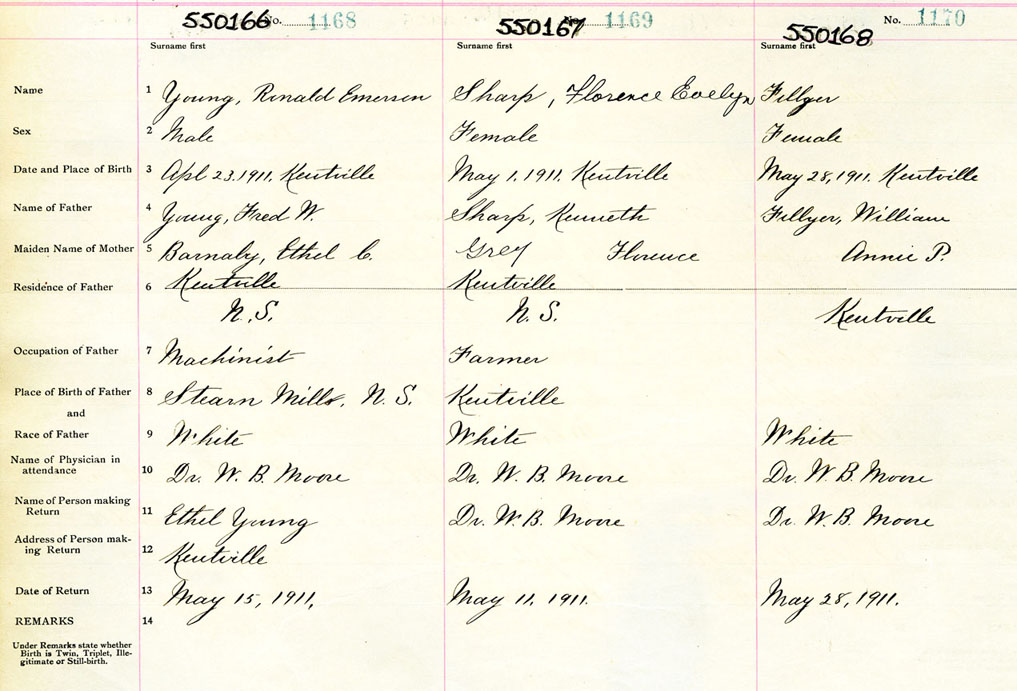 550166 No. 1168 550167 No. 1169 550168 No. 1170
Surname first Surname first Surname first
Name 1 Young, Ronald Emerson Sharp, Florence Evelyn Fillyer
Sex 2 Male Female Female
Date and Place of Birth 3 Apl 23.1911. Kentville May 1. 1911. Kentville May 28, 1911. Kentville
Name of Father 4 Young, Fred W. Sharp, Kenneth Fillyer, William
Maiden Name of Mother 5 Barnaby, Ethel C. Grey Florence Annie P.
Residence of Father 6 Kentville Kentville
N.S. N.S. Kentville
Occupation of Father 7 Machinist Farmer
Place of Birth of Father 8 Stearn Mills, N.S. Kentville
and
Race of Father 9 White White White
Name of Physician in
attendance 10 Dr. W. B. Moore Dr. W. B. Moore Dr. W. B. Moore
Name of Person making
Return 11 Ethel Young Dr. W. B. Moore Dr. W. B. Moore
Address of Person mak-
ing Return 12 Kentville
Date of Return 13 May 15, 1911. May 11. 1911. May 28, 1911.
REMARKS 14
Under Remarks state whether
Birth is Twin, Triplet, Ille-
gitimate or Still-birth.